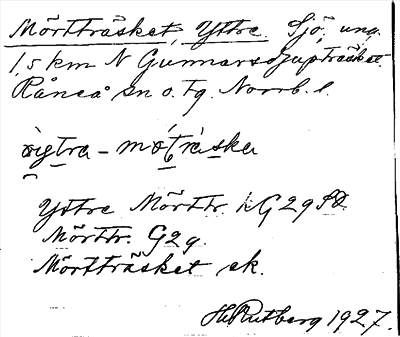 Mörtträsket, Yttre. Sjö, ung.
1,5 km N Gunnarsdjupträsket.
Råneå sn o. tg. Norrb. l.
Yttre Mörttr. kG2g
Mörttr. G2g.
Mörtträsket ek.
H. Rutberg 1927.